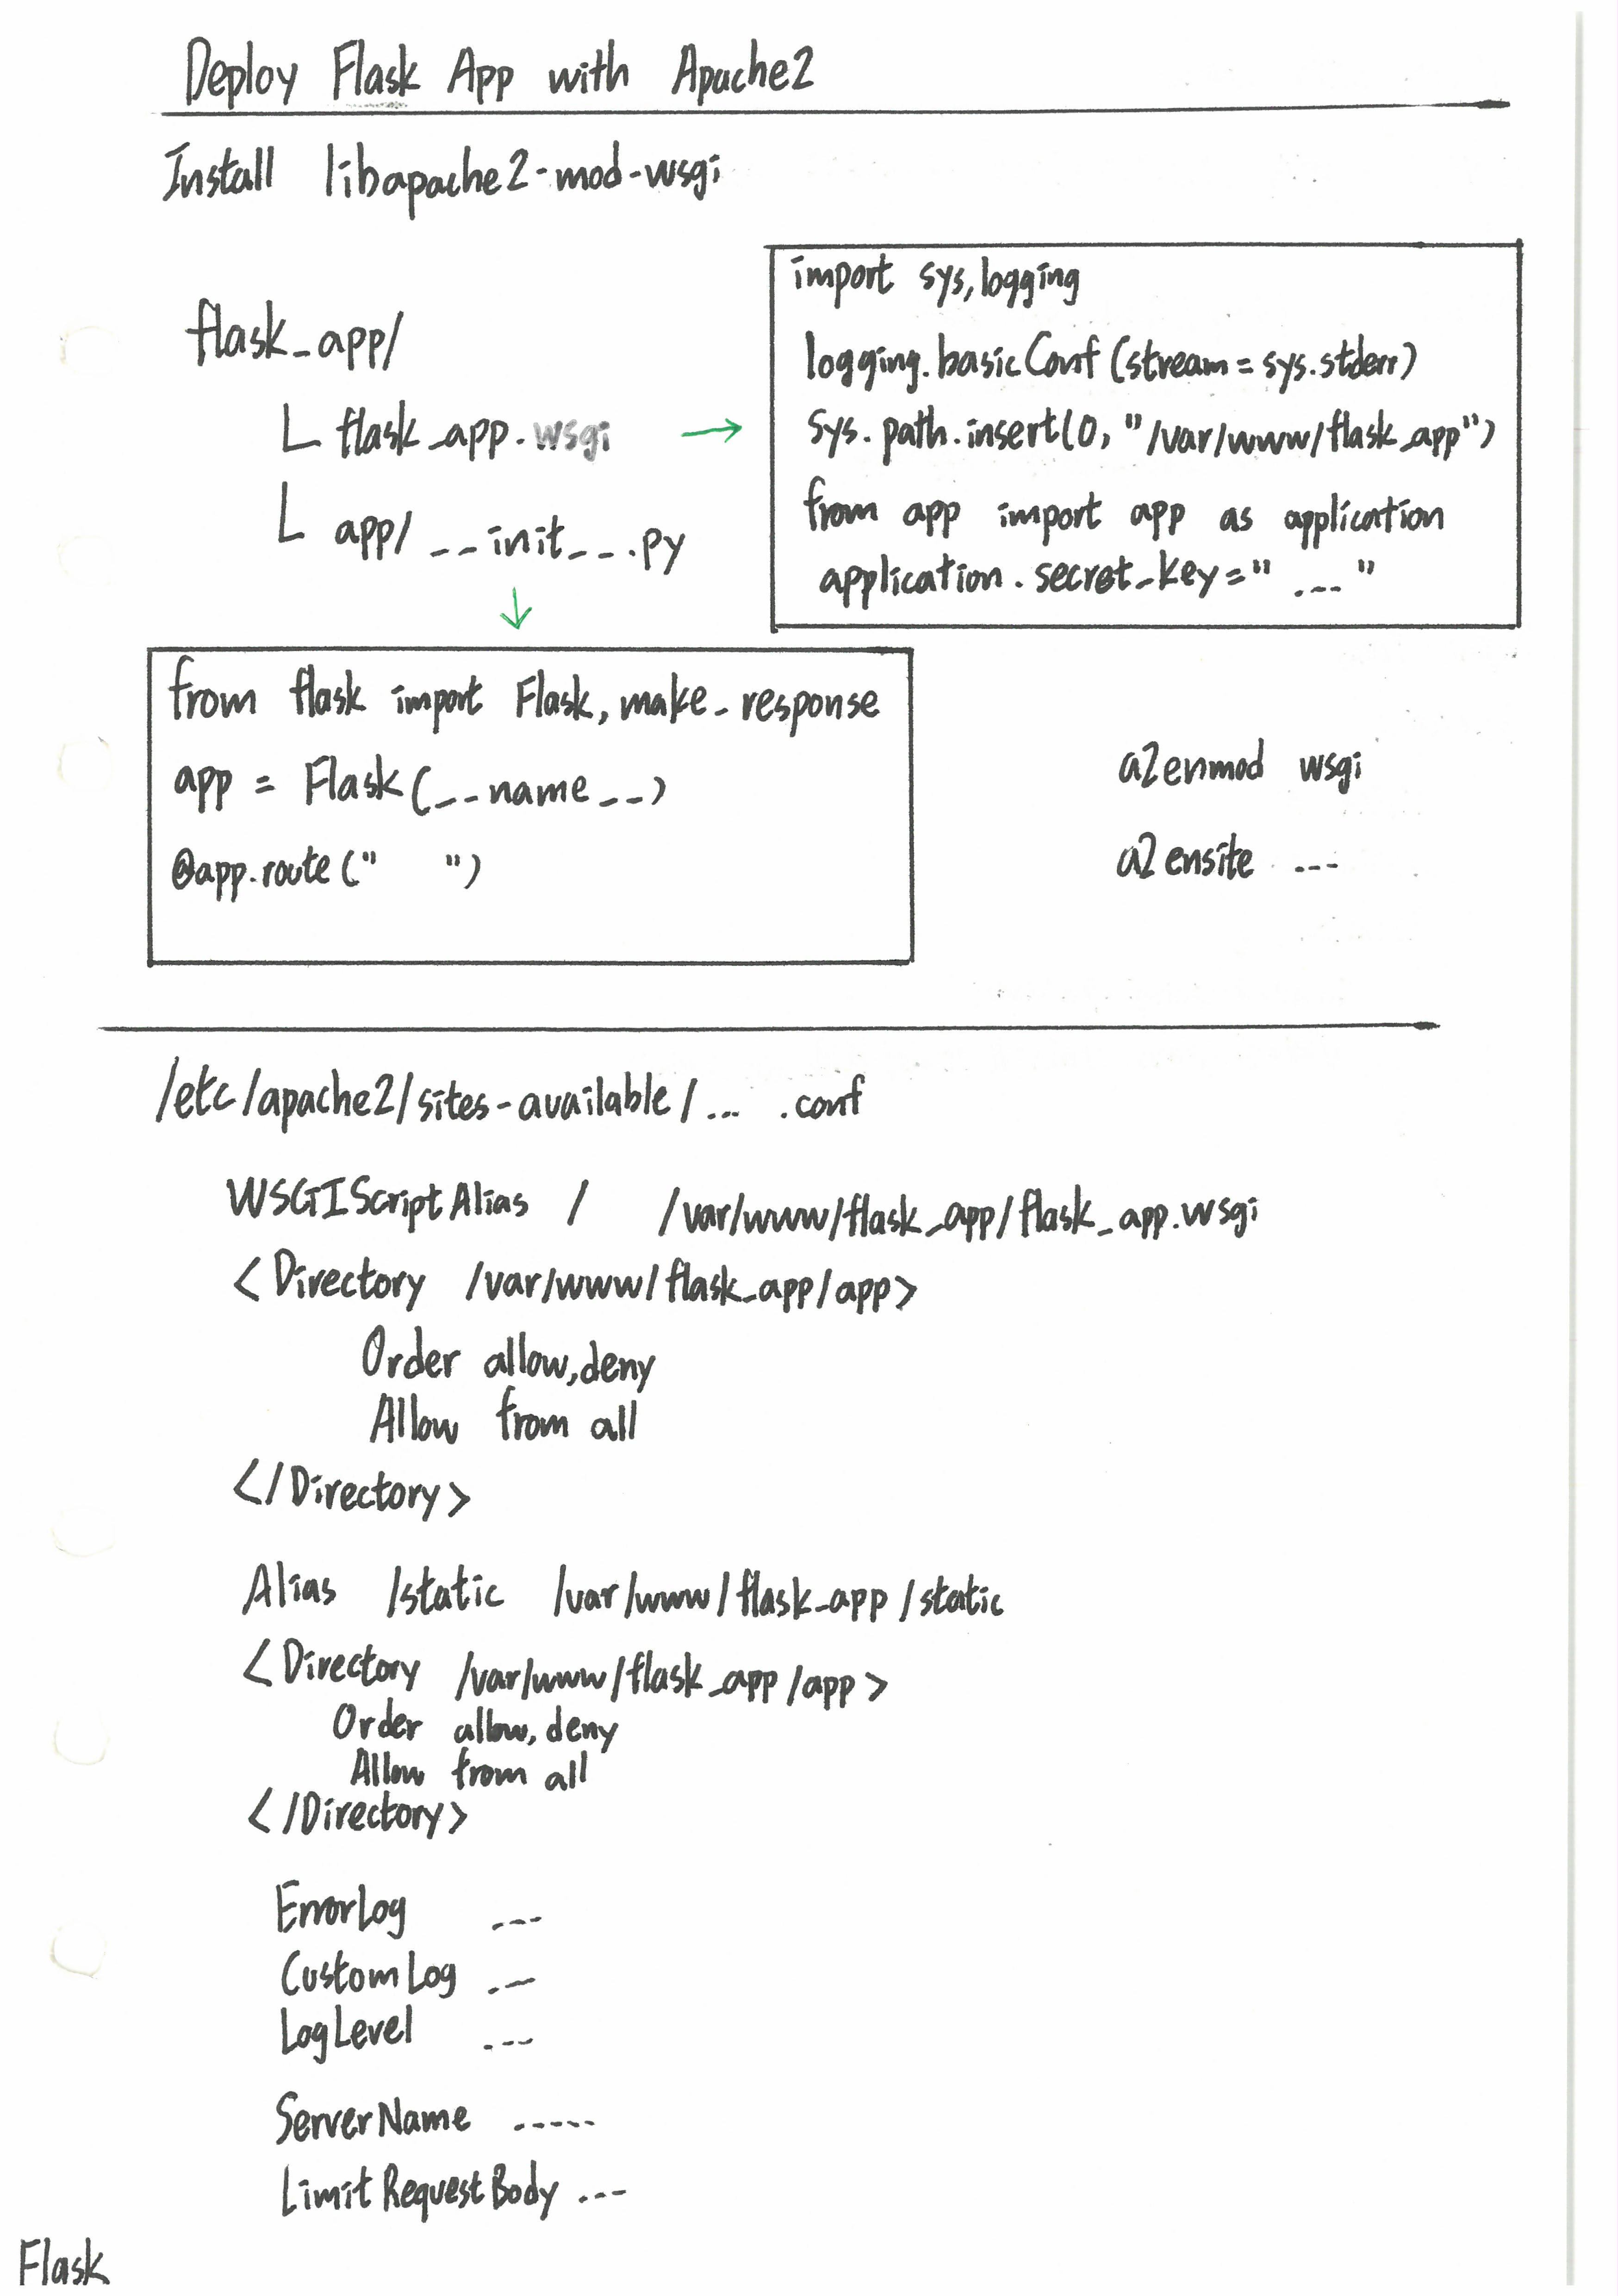 Deploy Flask App with Apache2
Install libapache2-mod-wsgi
flask_app/
L flask_app.wsgi →
L app/ __init__.py
↓
import sys, logging
logging.basicConf (stream = sys.stderr)
sys.path.insert(0, "/var/www/flask_app")
from app import app as application
application.secret_key = " ... "
from flask import Flask, make_response
app = Flask(__name__)
@app.route(" ")
a2enmod wsgi
a2ensite ...
/etc/apache2/sites-available/... .conf
WSGIScriptAlias / /var/www/flask_app/flask_app.wsgi
<Directory /var/www/flask_app/app>
Order allow,deny
Allow from all
</Directory>
Alias /static /var/www/flask_app/static
<Directory /var/www/flask_app/app>
Order allow, deny
Allow from all
</Directory>
ErrorLog ...
CustomLog ...
LogLevel ...
ServerName .....
LimitRequestBody ...
Flask